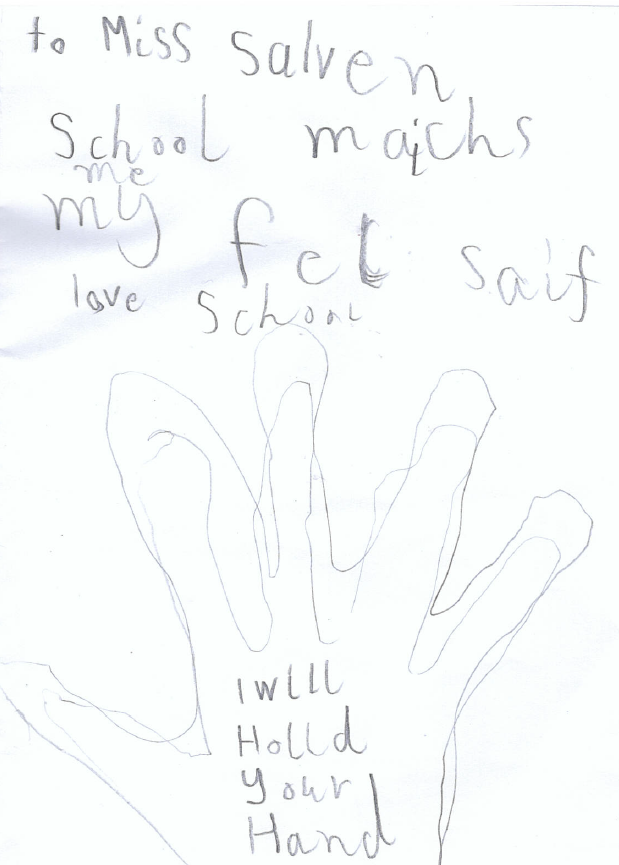 to Miss Salven
School majchs
me
my fel saif
love School
I wlll
Holld
your
Hand